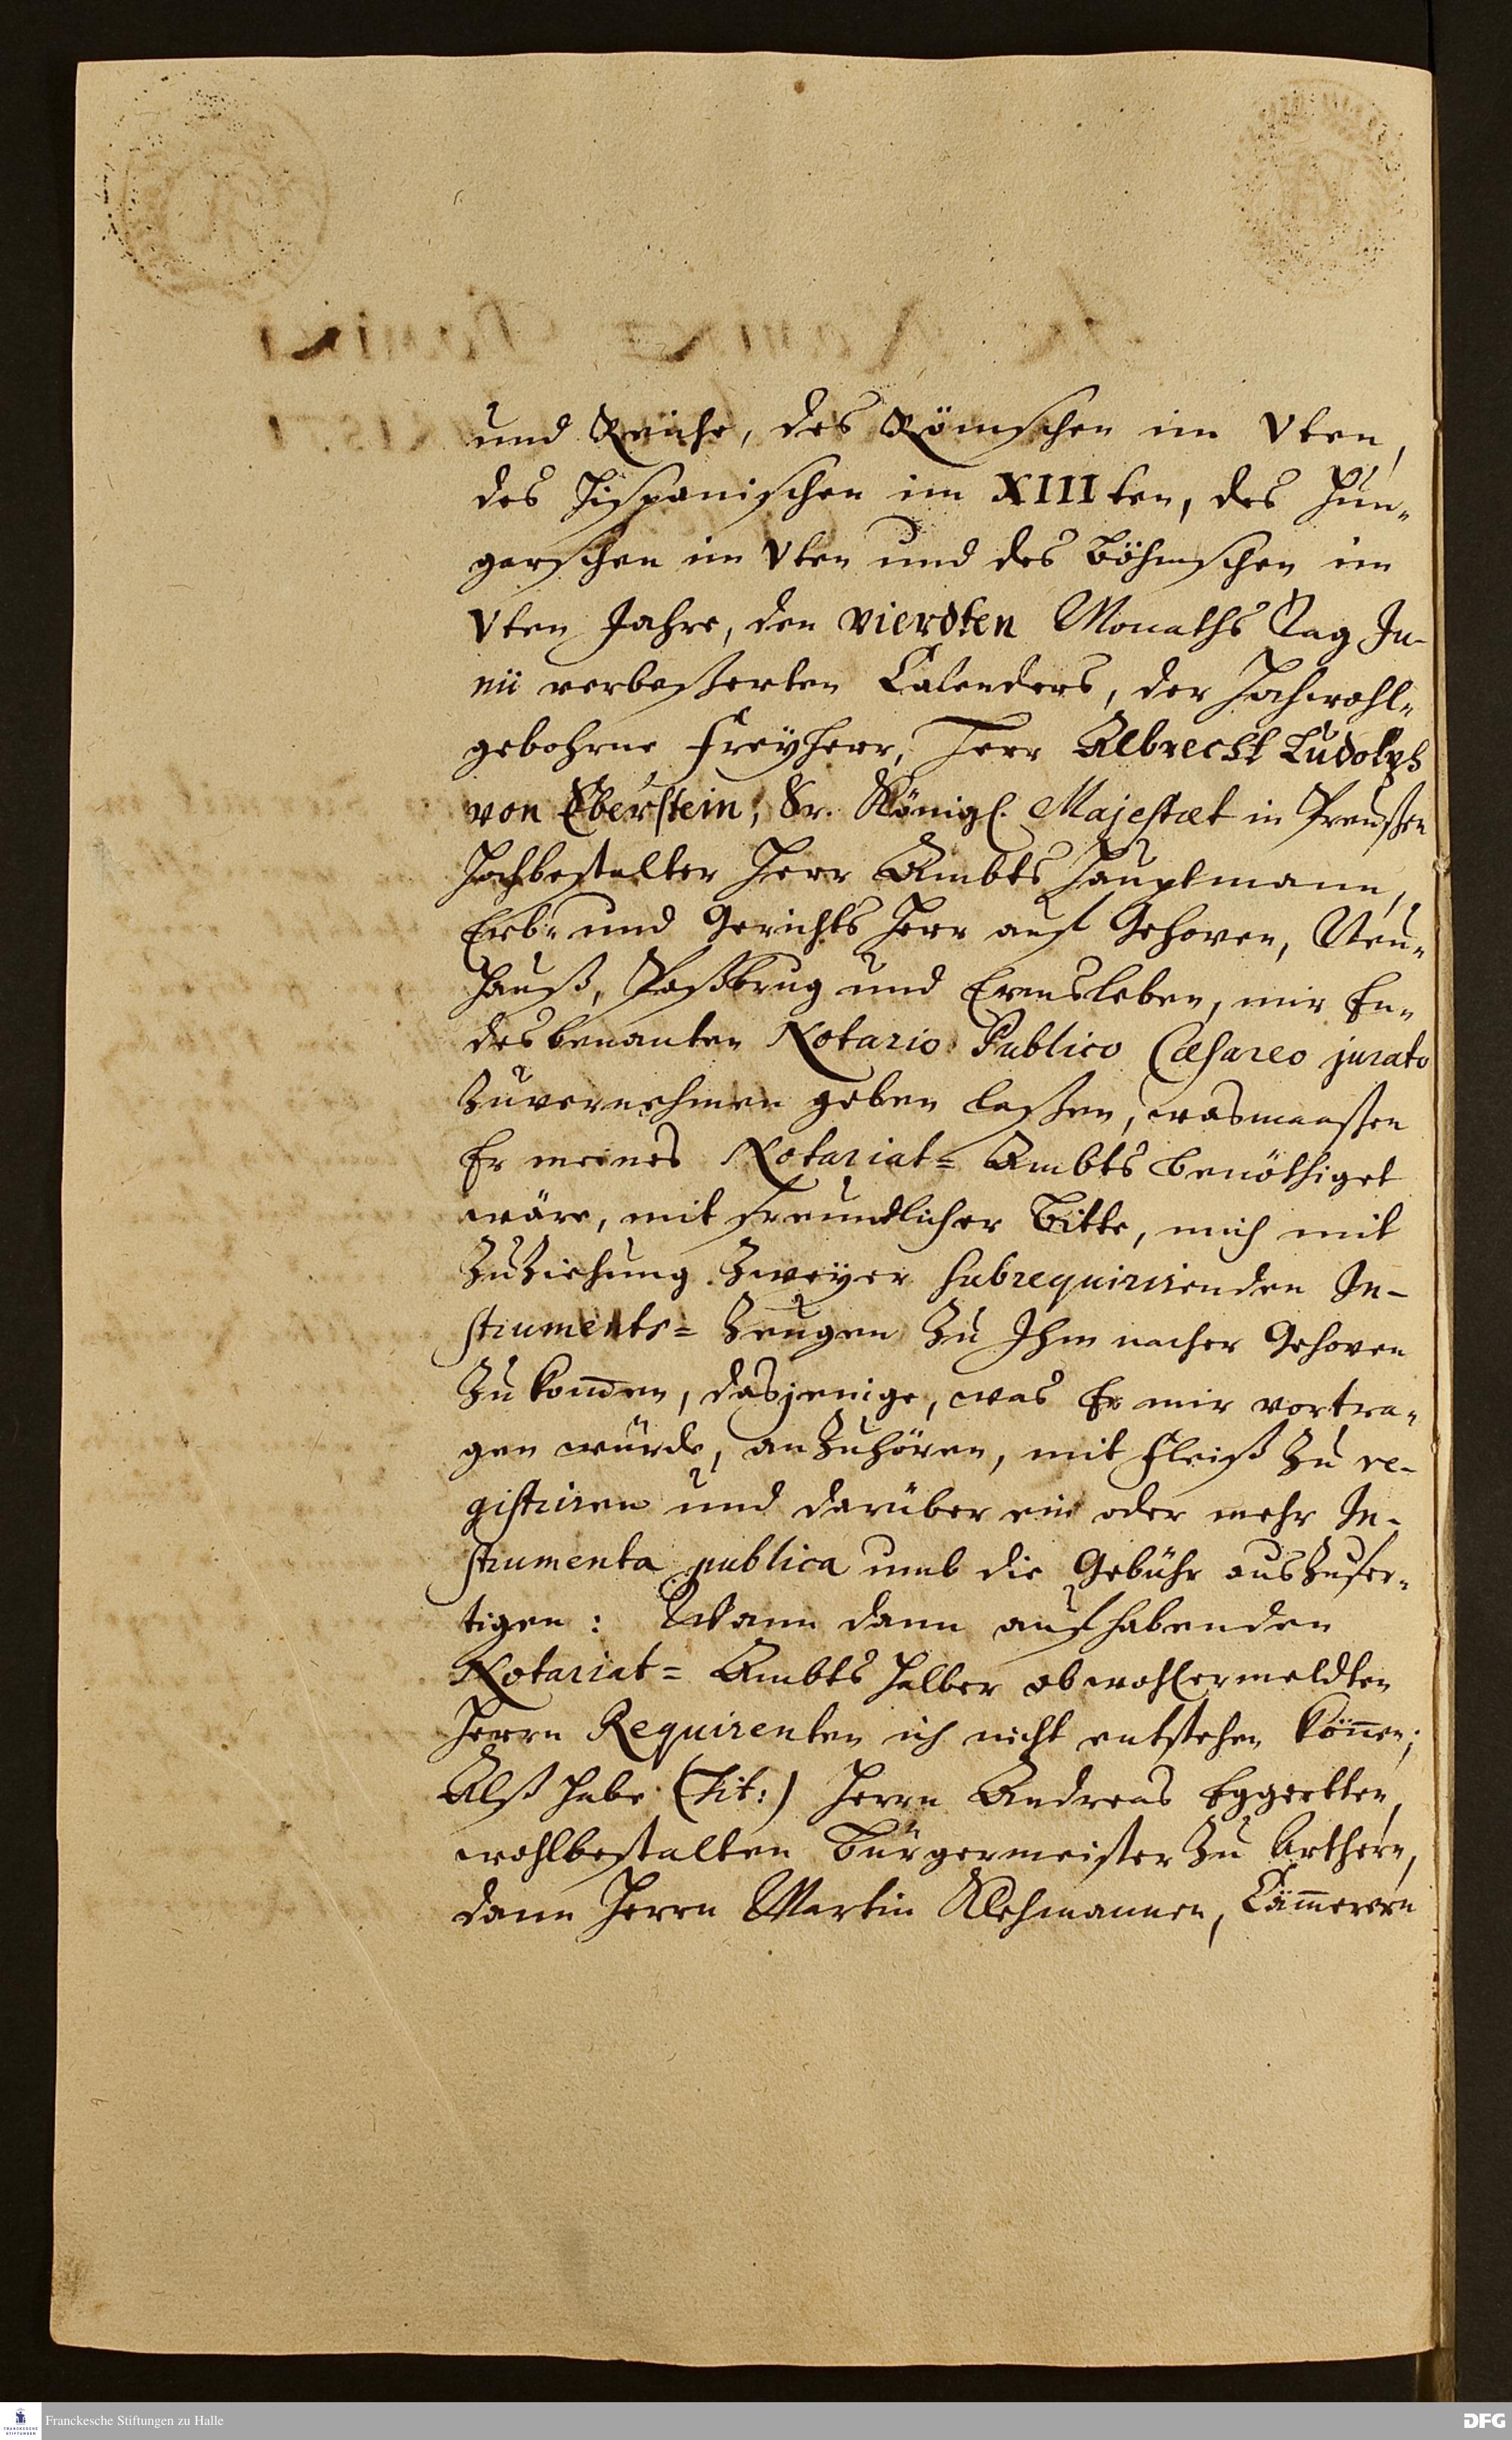 und Reiche, des Römschen im Vten,
des Hispanischen im XIIIten, des Hun-
garschen im Vten und des Böhmschen im
Vten Jahre, den vierdten Monaths Tag Ju-
nii verbeßerten Calenders, der Hochwohl-
gebohrne Freyherr, Herr Albrecht Ludolph
von Eberstein, Sr. Königl. Majestæt in Preußen
Hochbestalter Herr Ambts Hauptmann,
Erb- und Gerichts Herr auf Gehoven, Neu-
hauß, Paßbrug und Ermsleben, mir En-
desbenanten Notario Publico Cæsareo jurato
Zuvernehmen geben laßen, wasmaaßen
Er meines Notariat= Ambts benöthiget
wäre, mit freundlicher Bitte, mich mit
ZuZiehung Zweyer subrequirirenden In-
struments= Zeugen Zu Ihm nacher Gehoven
Zu kom̅en, dasjenige, was Er mir vortra-
gen würde, anZuhören, mit Fleiß Zu re-
gistriren und darüber ein oder mehr In-
strumenta publica umb die Gebühr ausZufer-
tigen: Wann dann aufhabenden
Notariat= Ambts halber obwohlermeldten
Herrn Requirenten ich nicht entstehen kön̅en;
Alß habe (Tit:) Herrn Andreas Eggertten,
wohlbestalten Bürgermeister Zu Arthern,
dann Herrn Martin Klehmannen, Cäm̅erern
Franckesche Stiftungen zu Halle
FRANCKESCHE STIFTUNGEN
DFG